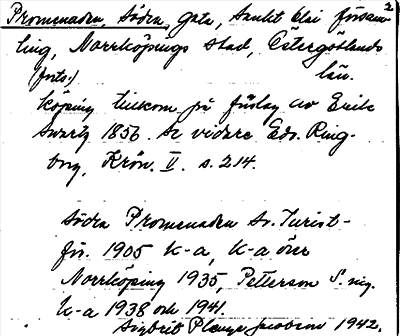 Promenaden, Södra, gata, Sankt Olai försam- 2
ling, Norrköpings stad, Östergötlands
(forts.) län.
köping tillkom på förslag av Erik
Swartz 1856. Se vidare Edv. Ring-
borg, Krön. II. s. 214.
Södra Promenaden Sv. Turist-
för. 1905 K-a, K-a över
Norrköping 1935, Petterson S.
K-a 1938 och 1941.
Ingbritt Jacobson 1942.